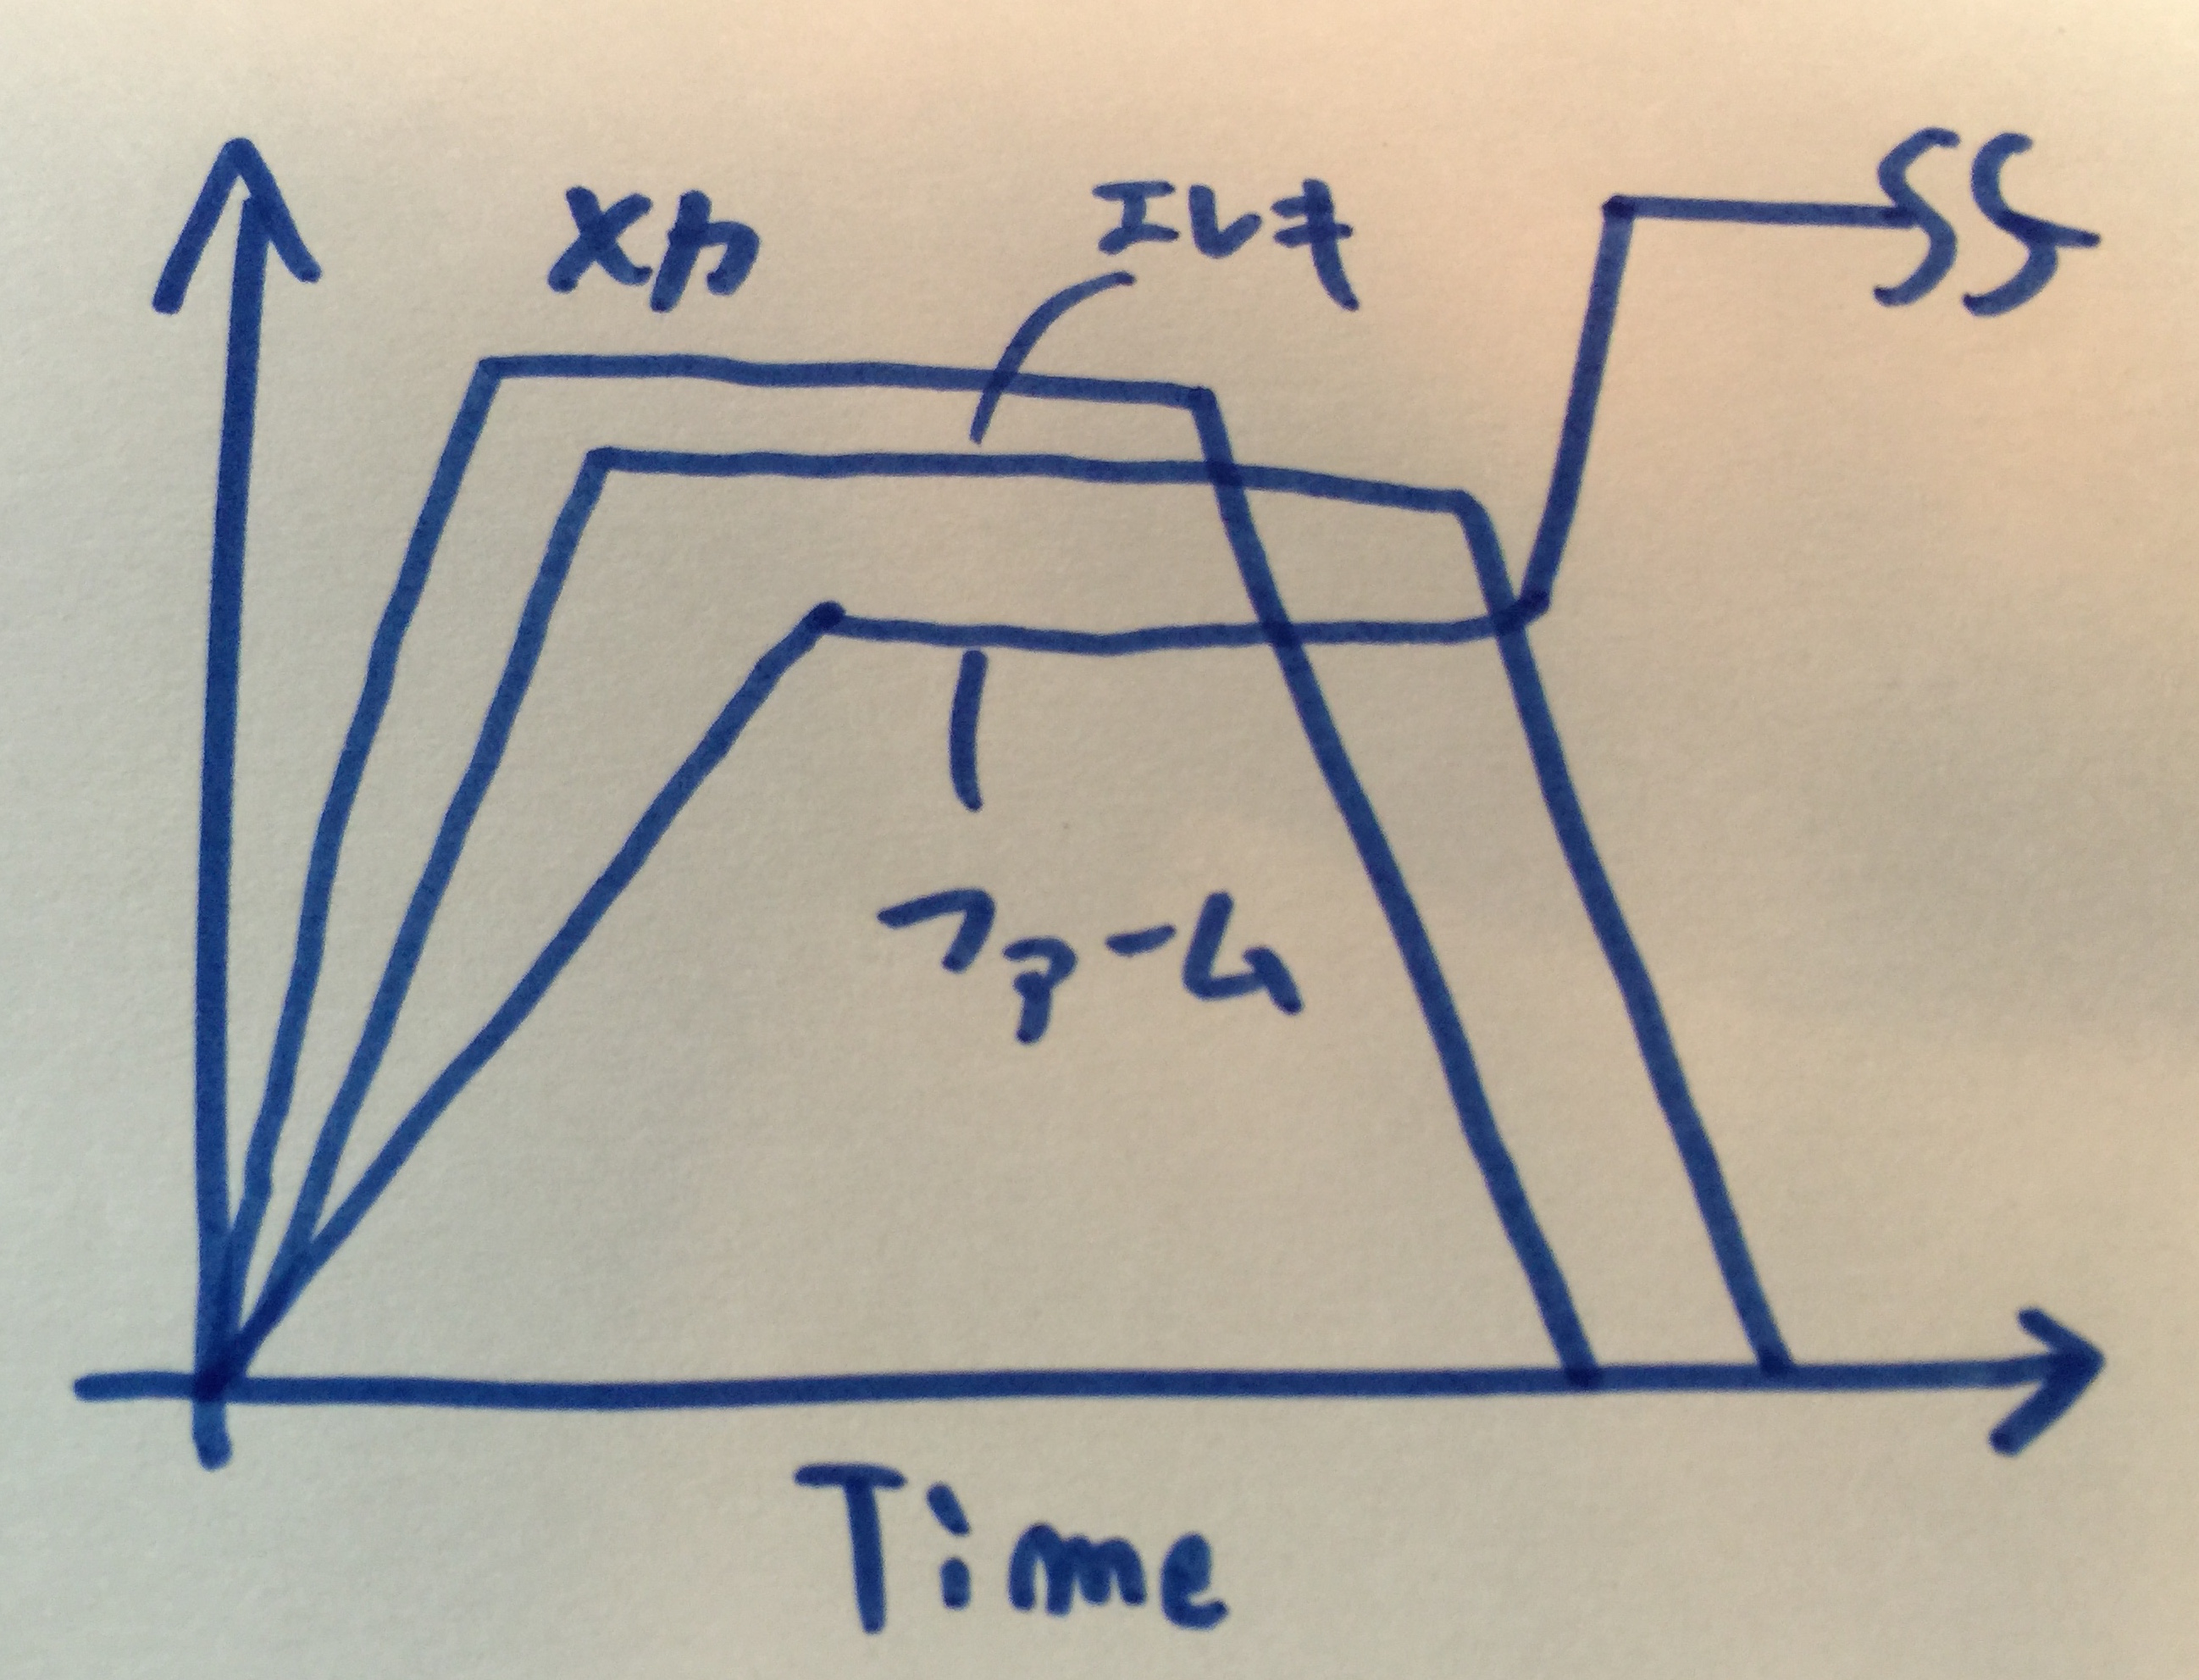 メカ
エレキ
ファーム
Time